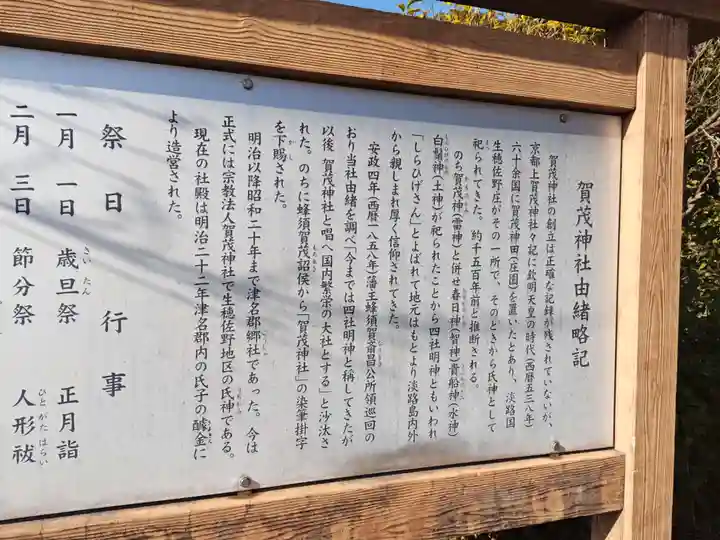 賀茂神社由緒略記
賀茂神社の創立は正確な記録が残されていないが、
京都上賀茂神社々記に欽明天皇の時代(西暦五三八年)
六十余国に賀茂神田(庄園)を置いたとあり、淡路国
生穂佐野庄がその一所で、そのときから氏神として
祀られてきた。約千五百年前と推断される。
のち賀茂神(雷神)と併せ春日神(智神)貴船神(水神)
白鬚神(土神)が祀られたことから四社明神ともいわれ
「しらひげさん」とよばれて地元はもとより淡路島内外
から親しまれ厚く信仰されてきた。
安政四年(西暦一八五八年)藩主蜂須賀斎昌公所領巡回の
おり当社由緒を調べ「今までは四社明神と称してきたが
以後 賀茂神社と唱へ国内繁栄の大社とする」と沙汰さ
れた。のちに蜂須賀詔侯から「賀茂神社」の染筆掛字
を下賜された。
明治以降昭和二十年まで津名郡郷社であった。今は
正式には宗教法人賀茂神社で生穂佐野地区の氏神である。
現在の社殿は明治二十二年津名郡内の氏子の醵金に
より造営された。
祭日行事
一月 一日 歳旦祭 正月詣
二月 三日 節分祭 人形祓